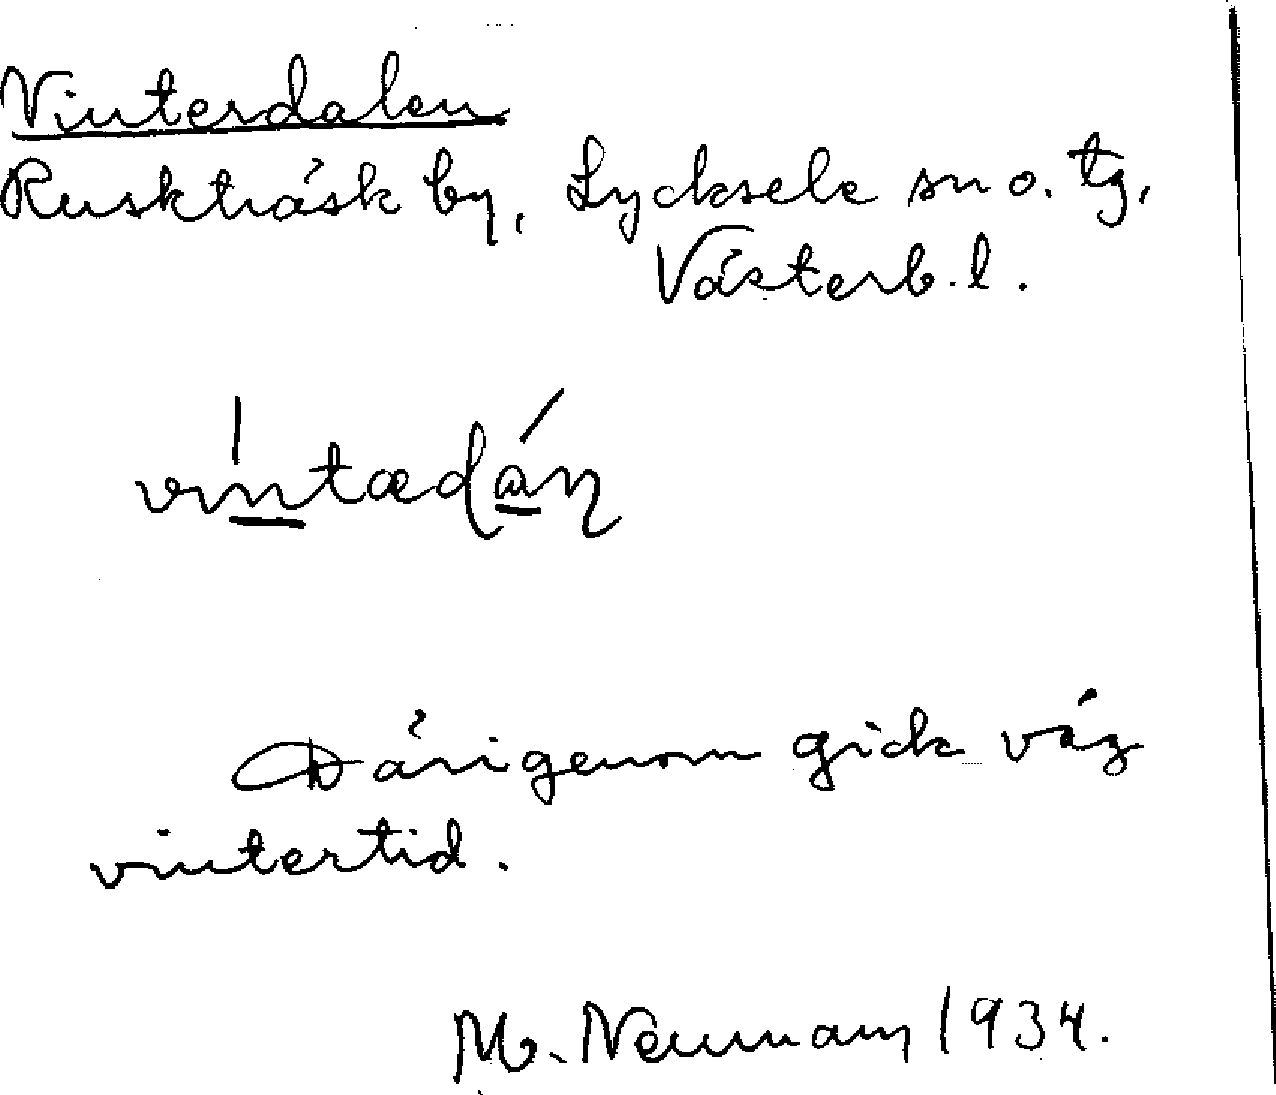 Vinterdalen
Ruskträsk by, Lycksele sn o. tg,
Västerb. l.
vintædán
Därigenom gick väg
vintertid.
M. Neumann 1934.